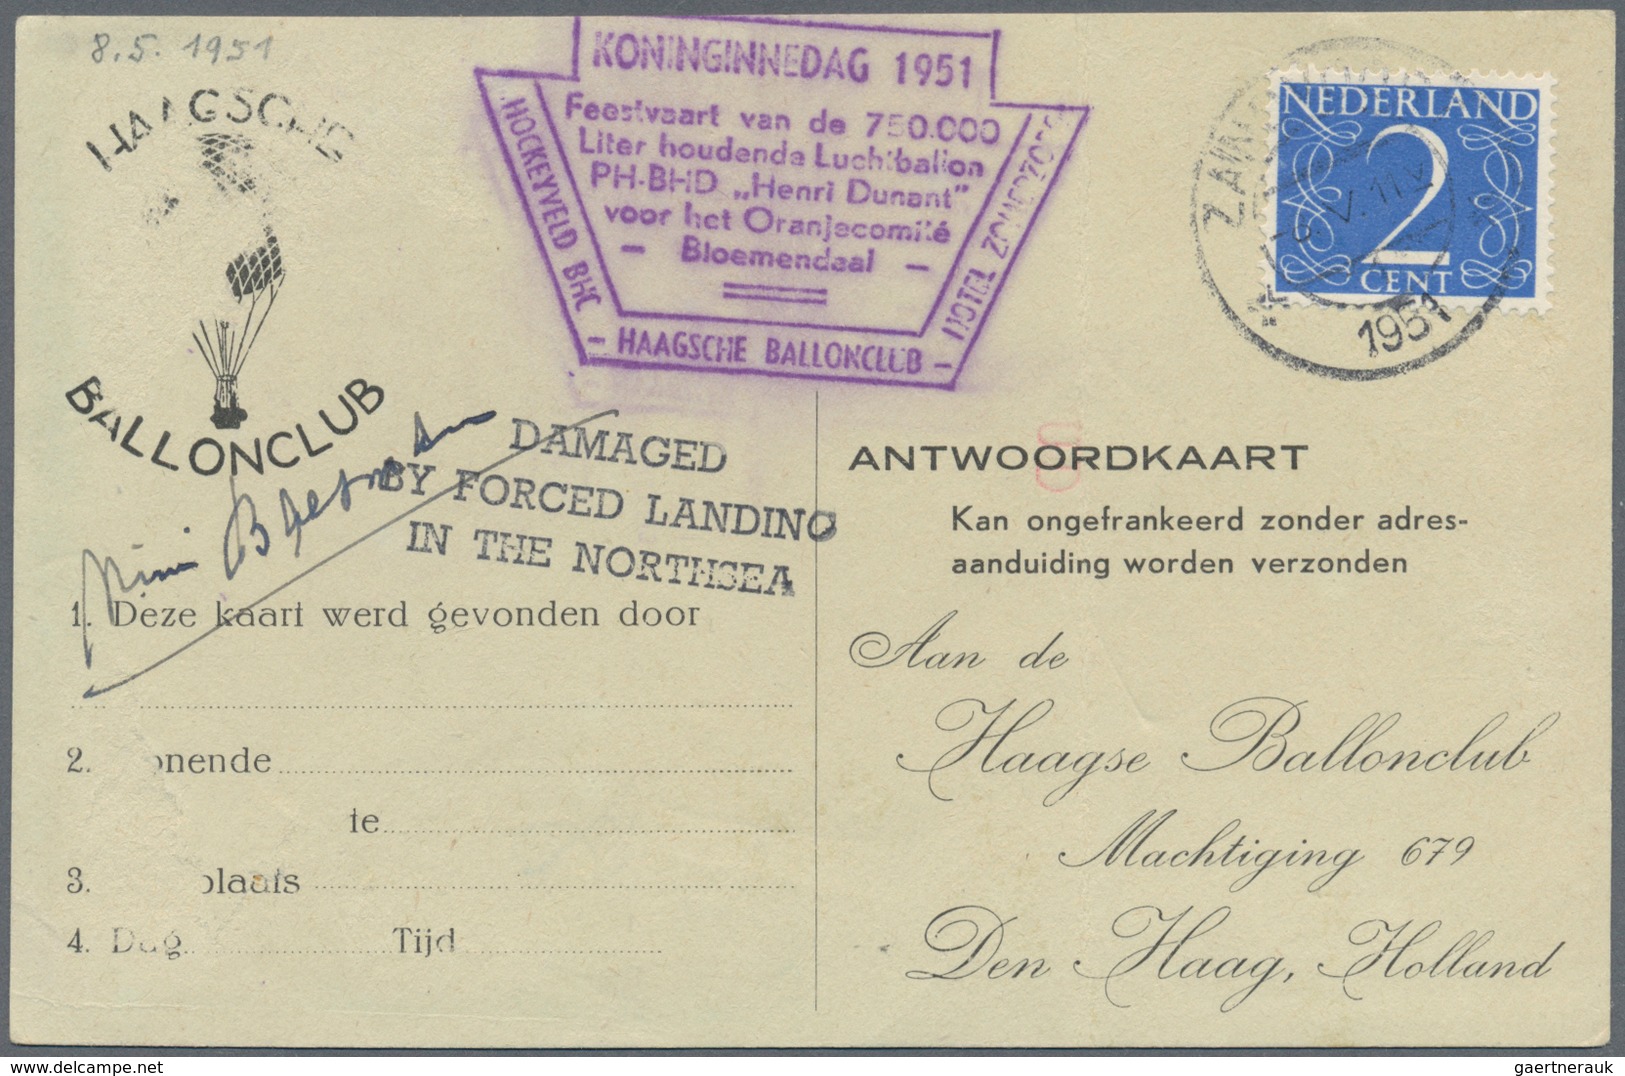 8.5. 1951
HAAGSCHE
BALLONCLUB
KONINGINNEDAG 1951
Feestvaart van de 750.000
Liter houdende Luchtballon
PH-BHD „Henri Dunant"
voor het Oranjecomité
- Bloemendaal -
HOCKEYVELD BHC
- HAAGSCHE BALLONCLUB -
HOTEL
NEDERLAND
2
CENT
1951
DAMAGED
BY FORCED LANDING
IN THE NORTHSEA
1. Deze kaart werd gevonden door
2. onende
te
3. plaats
4. Dag Tijd
ANTWOORDKAART
Kan ongefrankeerd zonder adres-
aanduiding worden verzonden
Aan de
Haagse Ballonclub
Machtiging 679
Den Haag, Holland
gaertnerauk